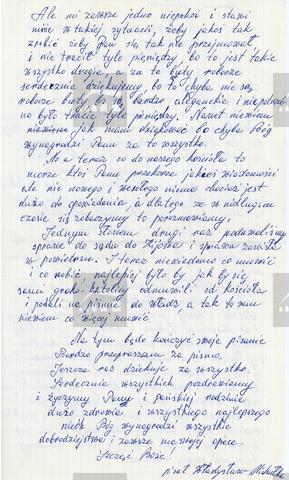 Ale mi zawsze jedno niepokoi i stawi
mnie w takiej sytuacji, żeby jakoś tak
zrobić żeby Pan się tak nie przejmował
i nie tracił tyle pieniędzy, bo to jest takie
wszystko drogie, a za te buty robocze
serdecznie dziękujemy bo to chyba nie są
robocze buty są bardzo eleganckie i niepotrzeb-
no było tracić tyle pieniędzy. Nawet niewiem
niewiem jak mam dziękować bo chyba Bóg
wynagrodzi Panu za to wszystko.
No a teraz co do naszego kościoła to
może ktoś Panu przekaże jakieś wiadomości
ale nic nowego i wesołego niema chociaż jest
dużo do opowiedzenia, a dlatego że w niedługim
czasie się zobaczymy to porozmawiamy.
Jednym słowem drugi raz podawaliśmy
sprawę do sądu do Kijowa i sprawa zawisła
w powietrzu. I teraz niewiadomo co mówić
i co robić, najlepiej było by jak by się
sami greko-katolicy odmówili od kościoła
i podali na piśmie do władz, a tak to sam
niewiem co więcej mówić
Na tym będę kończyć swoje pisanie
Bardzo przepraszam za pismo.
Jeszcze raz dziękuję za wszystko.
Serdecznie wszystkich pozdrawiamy
i życzymy Panu i pańskiej rodzinie
dużo zdrowia i wszystkiego najlepszego
niech Bóg wynagrodzi wszystkie
dobrodziejstwa i zawsze ma swojej opiece.
Szczęść Boże!
Władysław